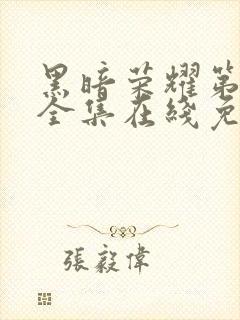 黑暗荣耀第
全集在线免
張毅偉